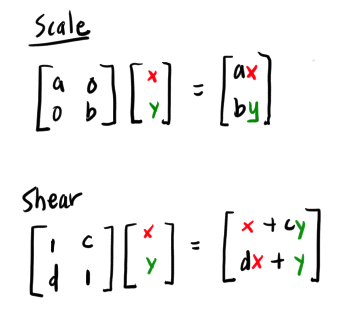 Scale
[a 0
0 b] [x
y] = [ax
by]
Shear
[1 c
d 1] [x
y] = [x + cy
dx + y]